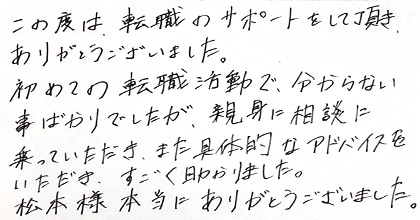 この度は、転職のサポートをして頂き、
ありがとうございました。
初めての転職活動で、分からない
事ばかりでしたが、親身に相談に
乗っていただき、また具体的なアドバイスを
いただき、すごく助かりました。
松本様 本当にありがとうございました。